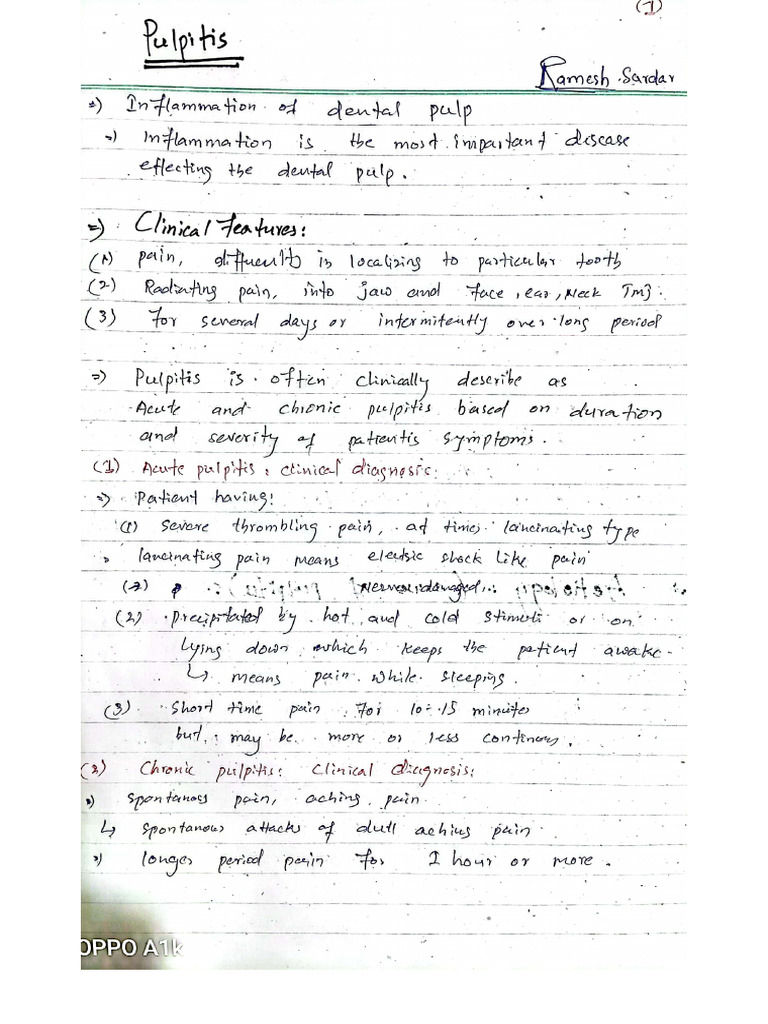 (1)
Pulpitis
Ramesh Sardar
=) Inflammation of dental pulp
=) Inflammation is the most important disease
effecting the dental pulp.
=) Clinical Features:
(1) pain, in localizing to particular tooth
(2) Radiating pain, into jaw and face, ear, Neck TMJ.
(3) For several days or intermitently over long period
=) Pulpitis is often clinically describe as
Acute and chronic pulpitis based on duration
and severity of patientis symptoms.
(1) Acute pulpitis: clinical diagnosis:
=) Patient having:
(1) severe thrombling pain, at times lancinating type
lancinating pain means electric shock like pain
(2) Nerves damaged
(2) precipitated by hot and cold stimuli or on
lying down which keeps the patient awake
↳ means pain while sleeping.
(3) short time pain for 10-15 minutes
but may be more or less continous.
(2) Chronic pulpitis: Clinical diagnosis:
=) spontanoss pain, aching pain
↳ spontanous attacks of dull aching pain
=) longer period pain for 1 hour or more.
OPPO A1k